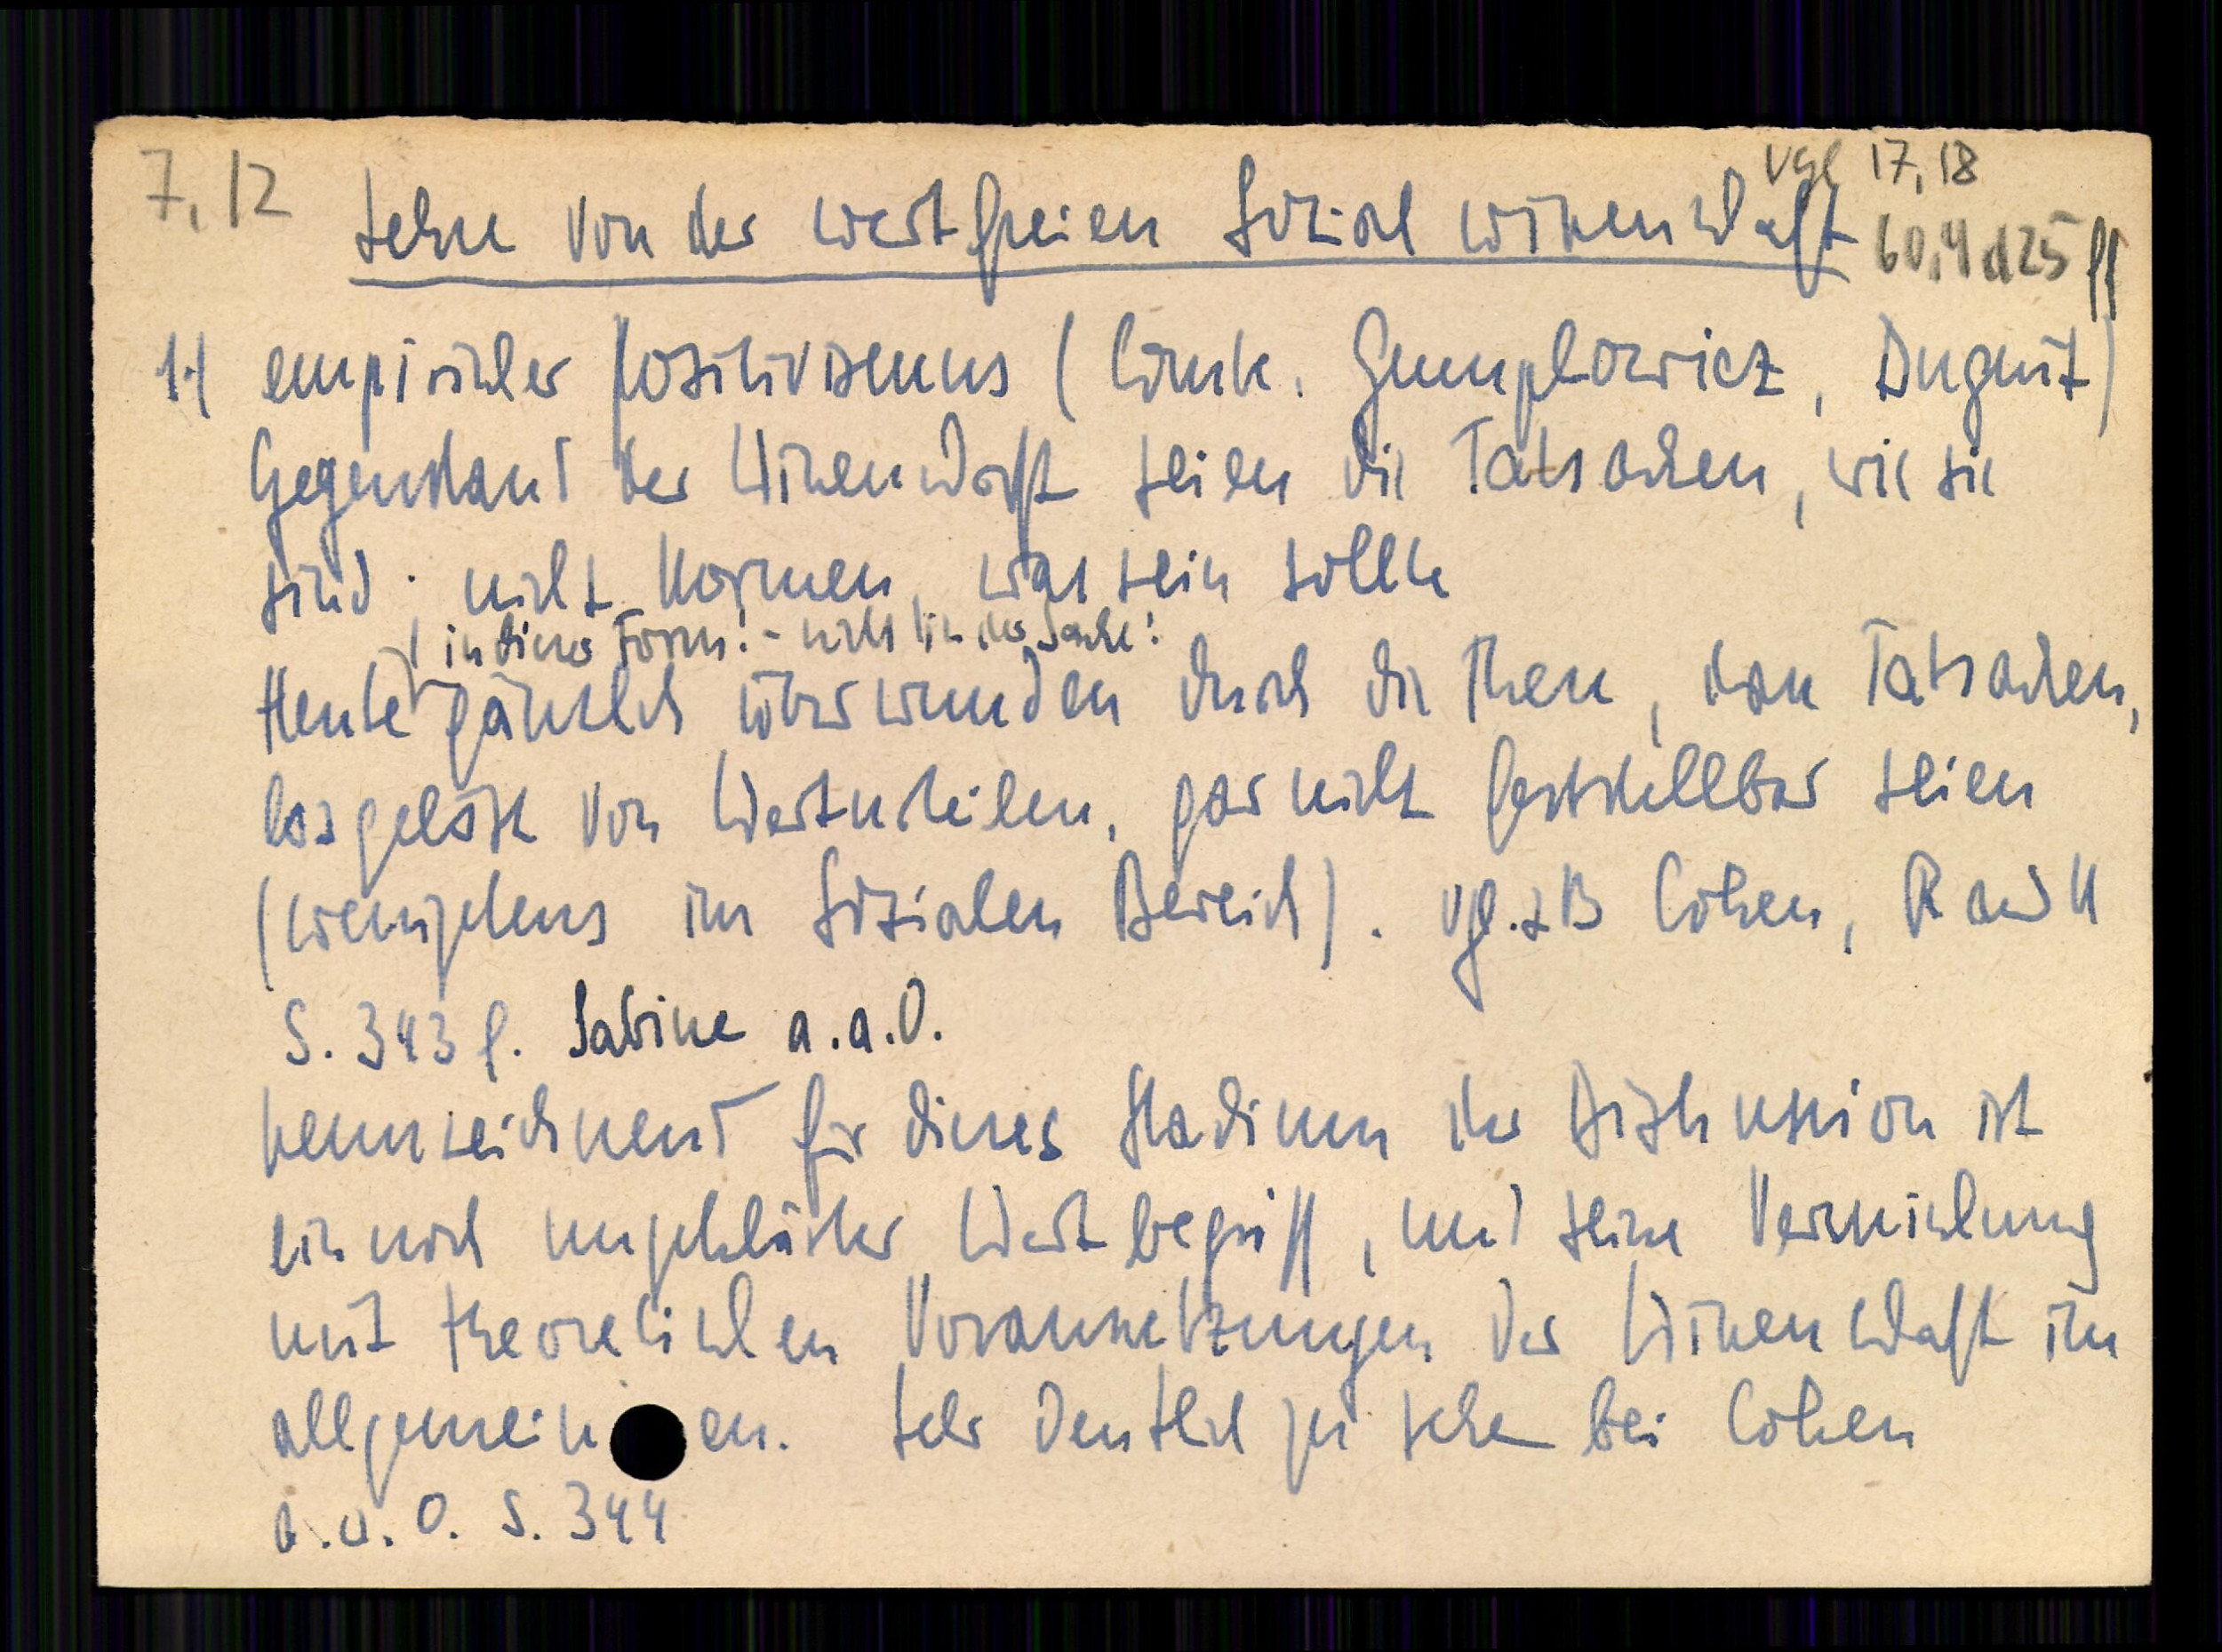 7,12
vgl 17,18
Lehre von der wertfreien Sozialwissenschaft 60,4d25ff
1.) empirischer Positivismus (Comte. Gumplowicz, Duguit)
Gegenstand der Wissenschaft seien die Tatsachen, wie sie
sind; nicht Normen, was sein sollte
(in dieser Form! - nicht in der Sache!
Heute gänzlich überwunden durch die These, dass Tatsachen,
losgelöst von Werturteilen, gar nicht feststellbar seien
(wenigstens im sozialen Bereich). vgl. zB Cohen, R and N
S. 343 f. Sabine a.a.O.
kennzeichnend für dieses Stadium der Diskussion ist
ein noch ungeklärter Wertbegriff, und seine Vermischung
mit theoretischen Voraussetzungen der Wissenschaft im
allgemeinen. Sehr deutlich zu sehen bei Cohen
a.a.O. S. 344